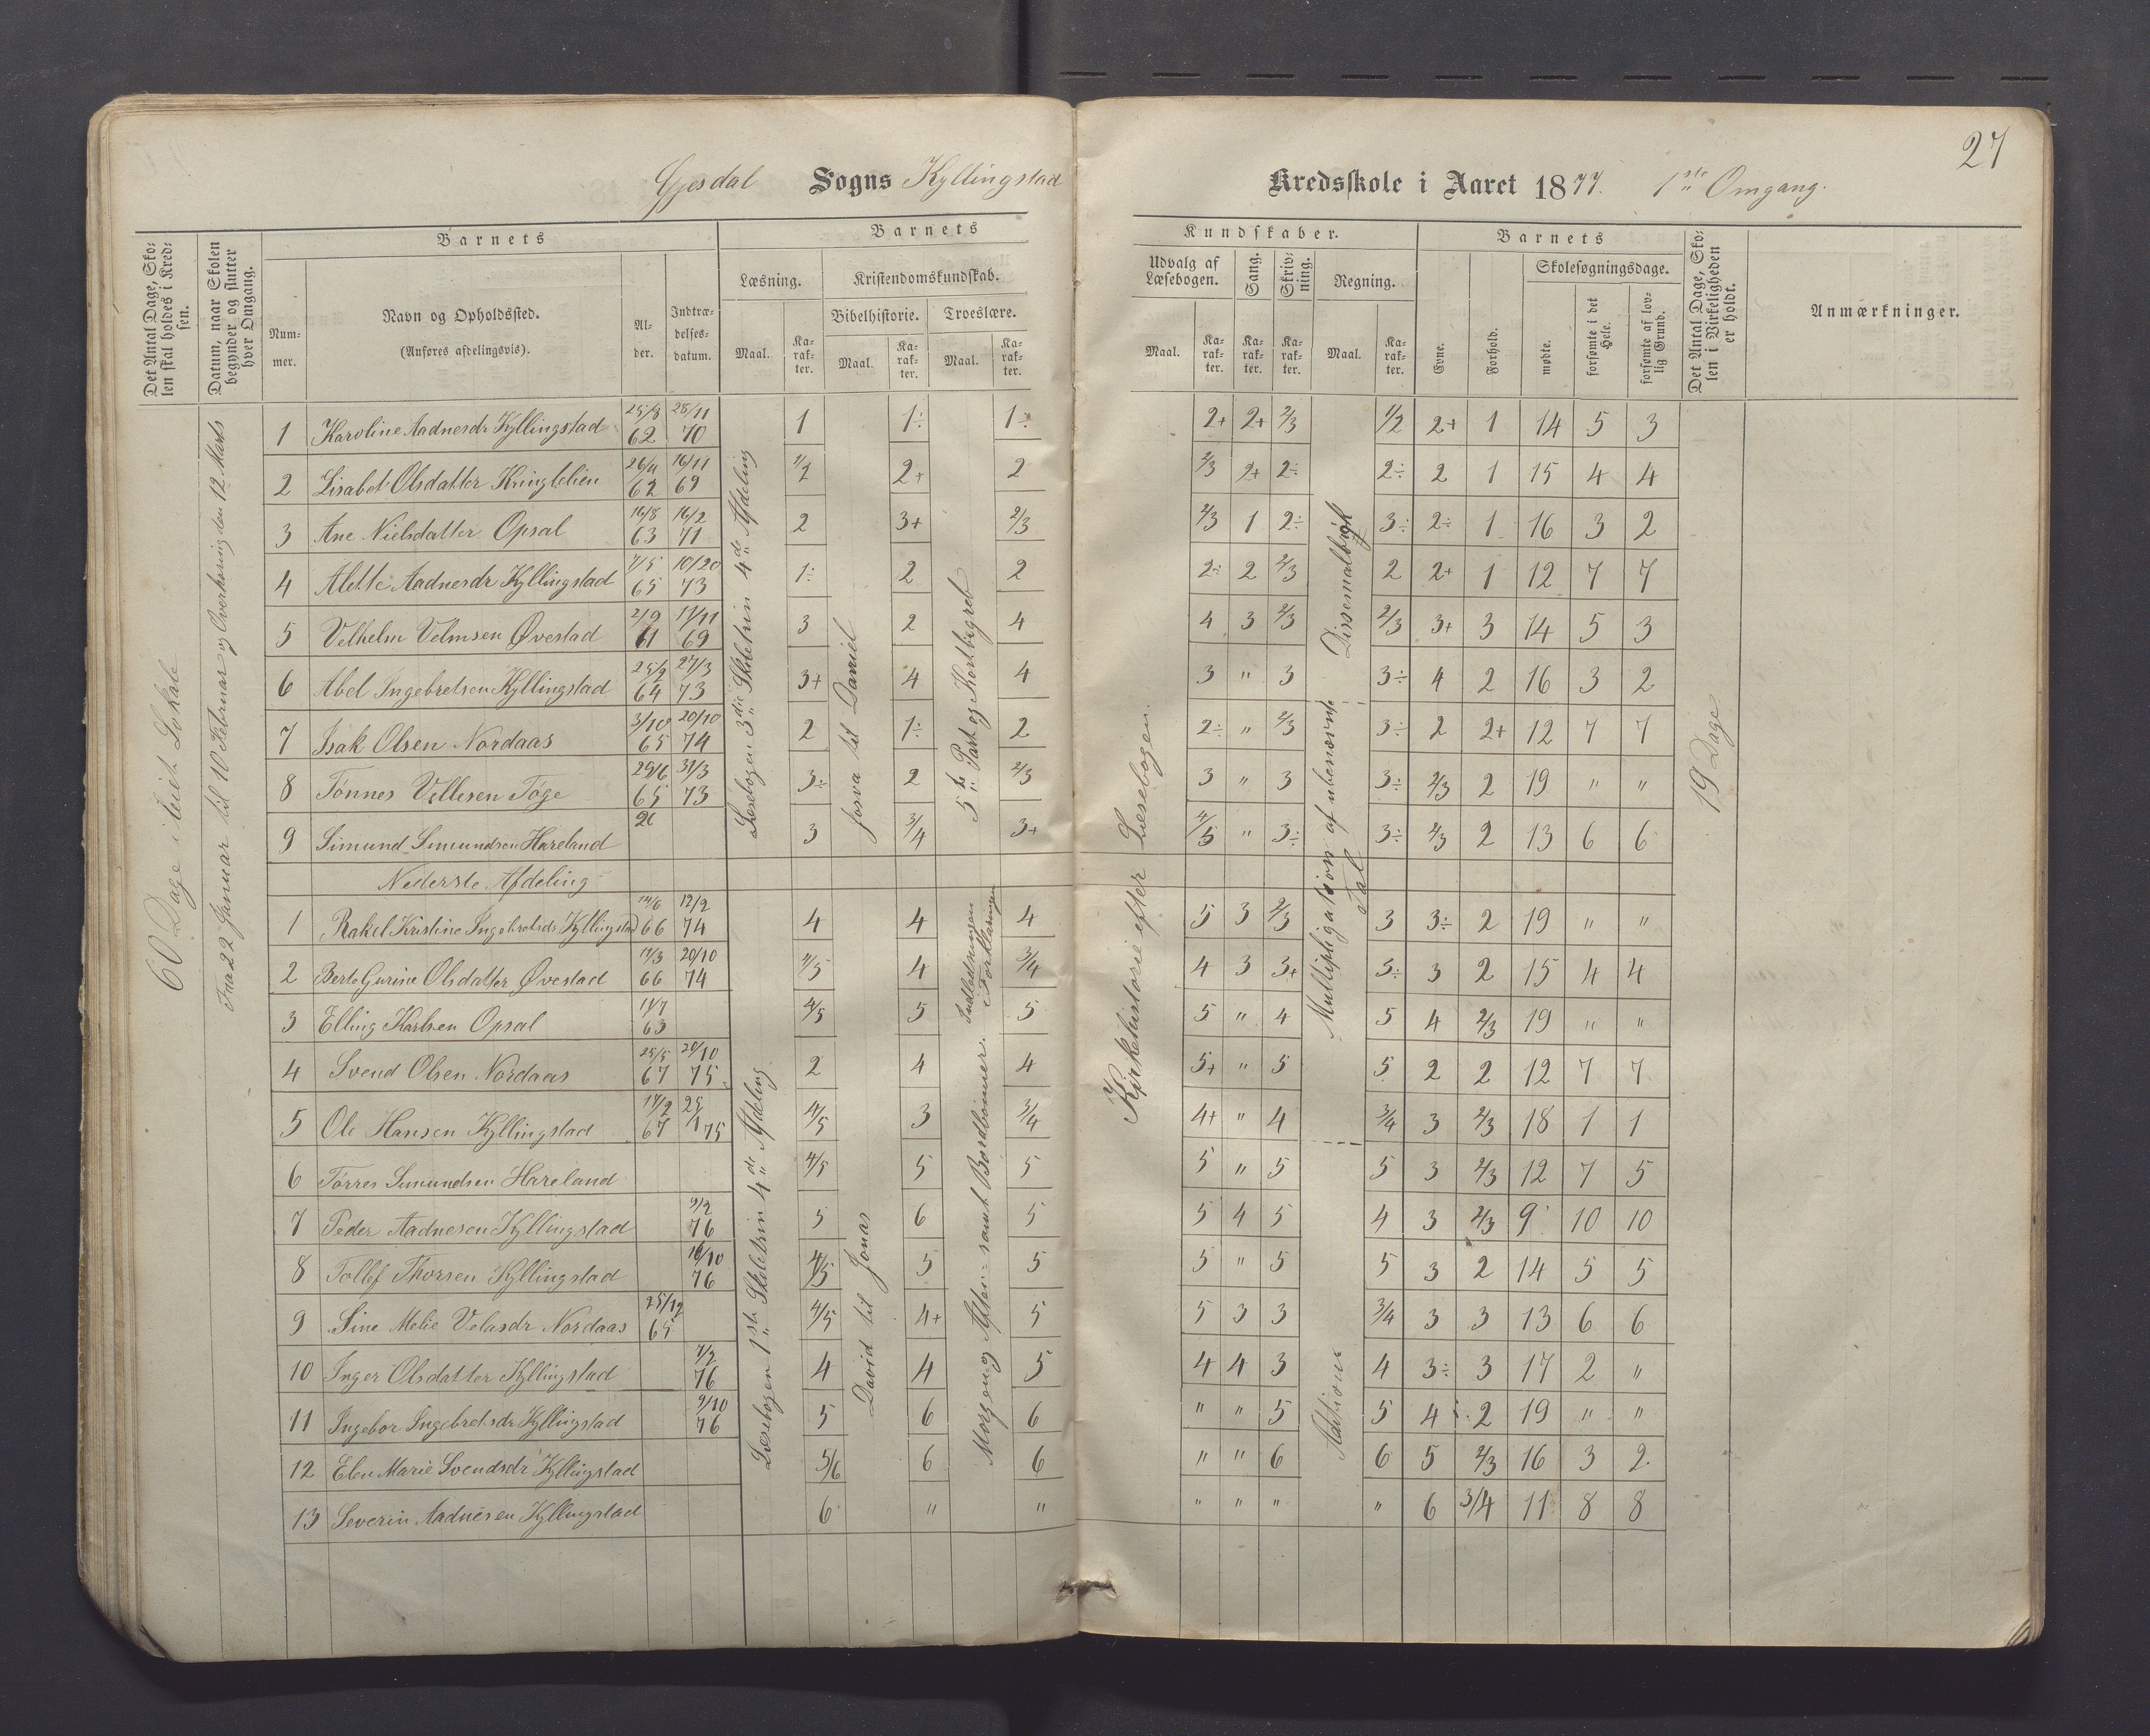 27
Gjesdal Sogns Kyllingstad Kredsskole i Aaret 1877. 1ste Omgang.
Det Antal Dage, Skolen skal holdes i Kredsen.
Datum, naar Skolen begynder og slutter hver Omgang.
Barnets
Nummer.
Navn og Opholdssted.
(Anføres afdelingsvis).
Alder.
Indtrædelsesdatum.
Barnets
Kundskaber.
Læsning.
Maal.
Karakter.
Kristendomskundskab.
Bibelhistorie.
Maal.
Karakter.
Troeslære.
Maal.
Karakter.
Udvalg af Læsebogen.
Maal.
Karakter.
Sang.
Karakter.
Skrivning.
Karakter.
Regning.
Maal.
Karakter.
Barnets
Evne.
Forhold.
Skolesøgningsdage.
mødte.
forsømte i det Hele.
forsømte af lovlig Grund.
Det Antal Dage, Skolen i Virkeligheden er holdt.
Anmærkninger.
60 Dage i leiet Lokale
Fra 22 Januar til 10 Februar og Overhøring den 12 Marts
Læsebogen 3die Skoletrin 4de Afdeling
Josva til Daniel
5te Part og Kort begreb
Kirkehistorie efter Læsebogen.
Dissemalbrøk
Multipligation af ubenævnte Tal
19 Dage
1 Karoline Aadnesdr Kyllingstad 25/8 62 28/11 70 1 1÷ 1÷ 2+ 2+ 2/3 1/2 2+ 1 14 5 3
2 Lisabet Olsdatter Kringlelien 26/4 62 16/11 69 1/2 2+ 2 2/3 2+ 2÷ 2÷ 2 1 15 4 4
3 Ane Nielsdatter Opsal 16/8 63 16/2 71 2 3+ 2/3 2/3 1 2÷ 3÷ 2÷ 1 16 3 2
4 Alette Aadnesdr Kyllingstad 7/5 65 10/20 73 1÷ 2 2 2÷ 2 2/3 2 2+ 1 12 7 7
5 Velhelm Velmsen Øvestad 2/9 61 17/11 69 3 2 4 4 3 2/3 2/3 3+ 3 14 5 3
6 Abel Ingebretsen Kyllingstad 25/2 64 27/3 73 3+ 4 4 3 " 3 3÷ 4 2 16 3 2
7 Isak Olsen Nordaas 3/10 65 20/10 74 2 1÷ 2 2÷ " 2/3 3÷ 2 2+ 12 7 7
8 Tønnes Vellesen Tøge 29/6 65 31/3 73 3÷ 2 2/3 3 " 3 3÷ 2/3 2 19 " "
9 Simund Simundsen Høreland 26 3 3/4 3+ 4/5 " 3÷ 3÷ 2/3 2 13 6 6
Nederste Afdeling
Læsebogen 1ste Skoletrin 4de Afdeling
David til Jonas
Morgen og Aften- samt Bordbønner. Indledningen i Forklaringen
Aditions
1 Rakel Kristine Ingebretsdr Kyllingstad 14/6 66 12/2 74 4 4 4 5 3 2/3 3 3÷ 2 19 " "
2 Berte Gurine Olsdatter Øvestad 17/3 66 20/10 74 4/5 4 3/4 4 3 3+ 3÷ 3 2 15 4 4
3 Elling Karlsen Opsal 17/7 63 4/5 5 5 5 " 4 5 4 2/3 19 " "
4 Svend Olsen Nordaas 25/5 67 20/10 75 2 4 4 5+ " 5 5 2 2 12 7 7
5 Ole Hansen Kyllingstad 14/2 67 25/1 75 4/5 3 3/4 4+ " 4 3/4 3 2/3 18 1 1
6 Tørres Simundsen Høreland 4/5 5 5 5 " 5 5 3 2/3 12 7 5
7 Peder Aadnesen Kyllingstad 9/2 76 5 6 5 5 4 5 4 3 2/3 9 10 10
8 Tollef Thorsen Kyllingstad 16/10 76 4/5 5 5 5 " 5 5 3 2 14 5 5
9 Sine Melie Velasdr Nordaas 25/12 65 4/5 4+ 5 5 3 3 3/4 3 3 13 6 6
10 Inger Olsdatter Kyllingstad 7/2 76 4 4 5 4 4 3 4 3÷ 3 17 2 "
11 Ingebor Ingebretsdr Kyllingstad 9/10 76 5 6 6 " " 5 5 4 2 19 " "
12 Elen Marie Svendsdr Kyllingstad 5/6 6 6 " " 6 6 5 2/3 16 3 2
13 Severin Aadnesen Kyllingstad 6 " " " " " " 6 3/4 11 8 8